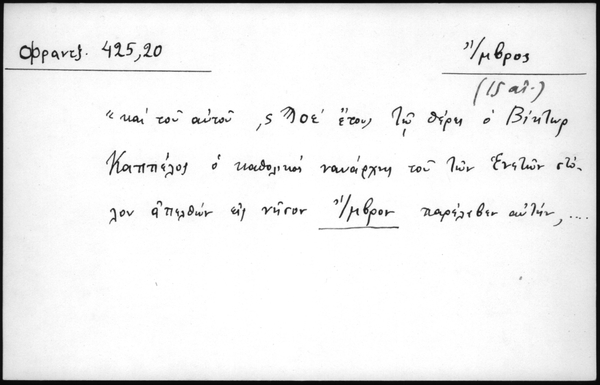 Φραντζ. 425,20
Ἴμβρος
(15 αἰ.)
"καί τοῦ αὐτοῦ ,ϛ Ϡοε´ ἔτους τῷ θέρει ὁ Βίκτωρ
Καππέλος ὁ καθολικός ναυάρχης τοῦ τῶν Ἐνετῶν στό-
λου ἀπελθών εἰς νῆσον Ἴμβρον παρέλαβεν αὐτήν, ....